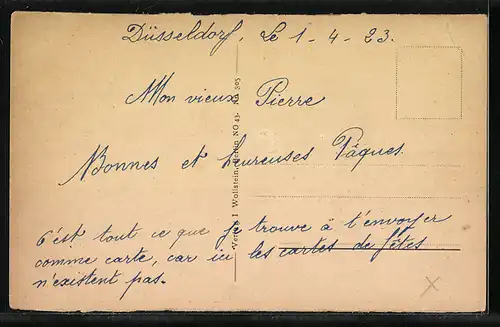 Düsseldorf, Le 1-4-23.
Mon vieux Pierre
Bonnes et heureuses Pâques.
C'est tout ce que je trouve à t'envoyer
comme carte, car ici les cartes de fêtes
n'existent pas.
Verlag J. Wollstein, Berlin NO 43.
X